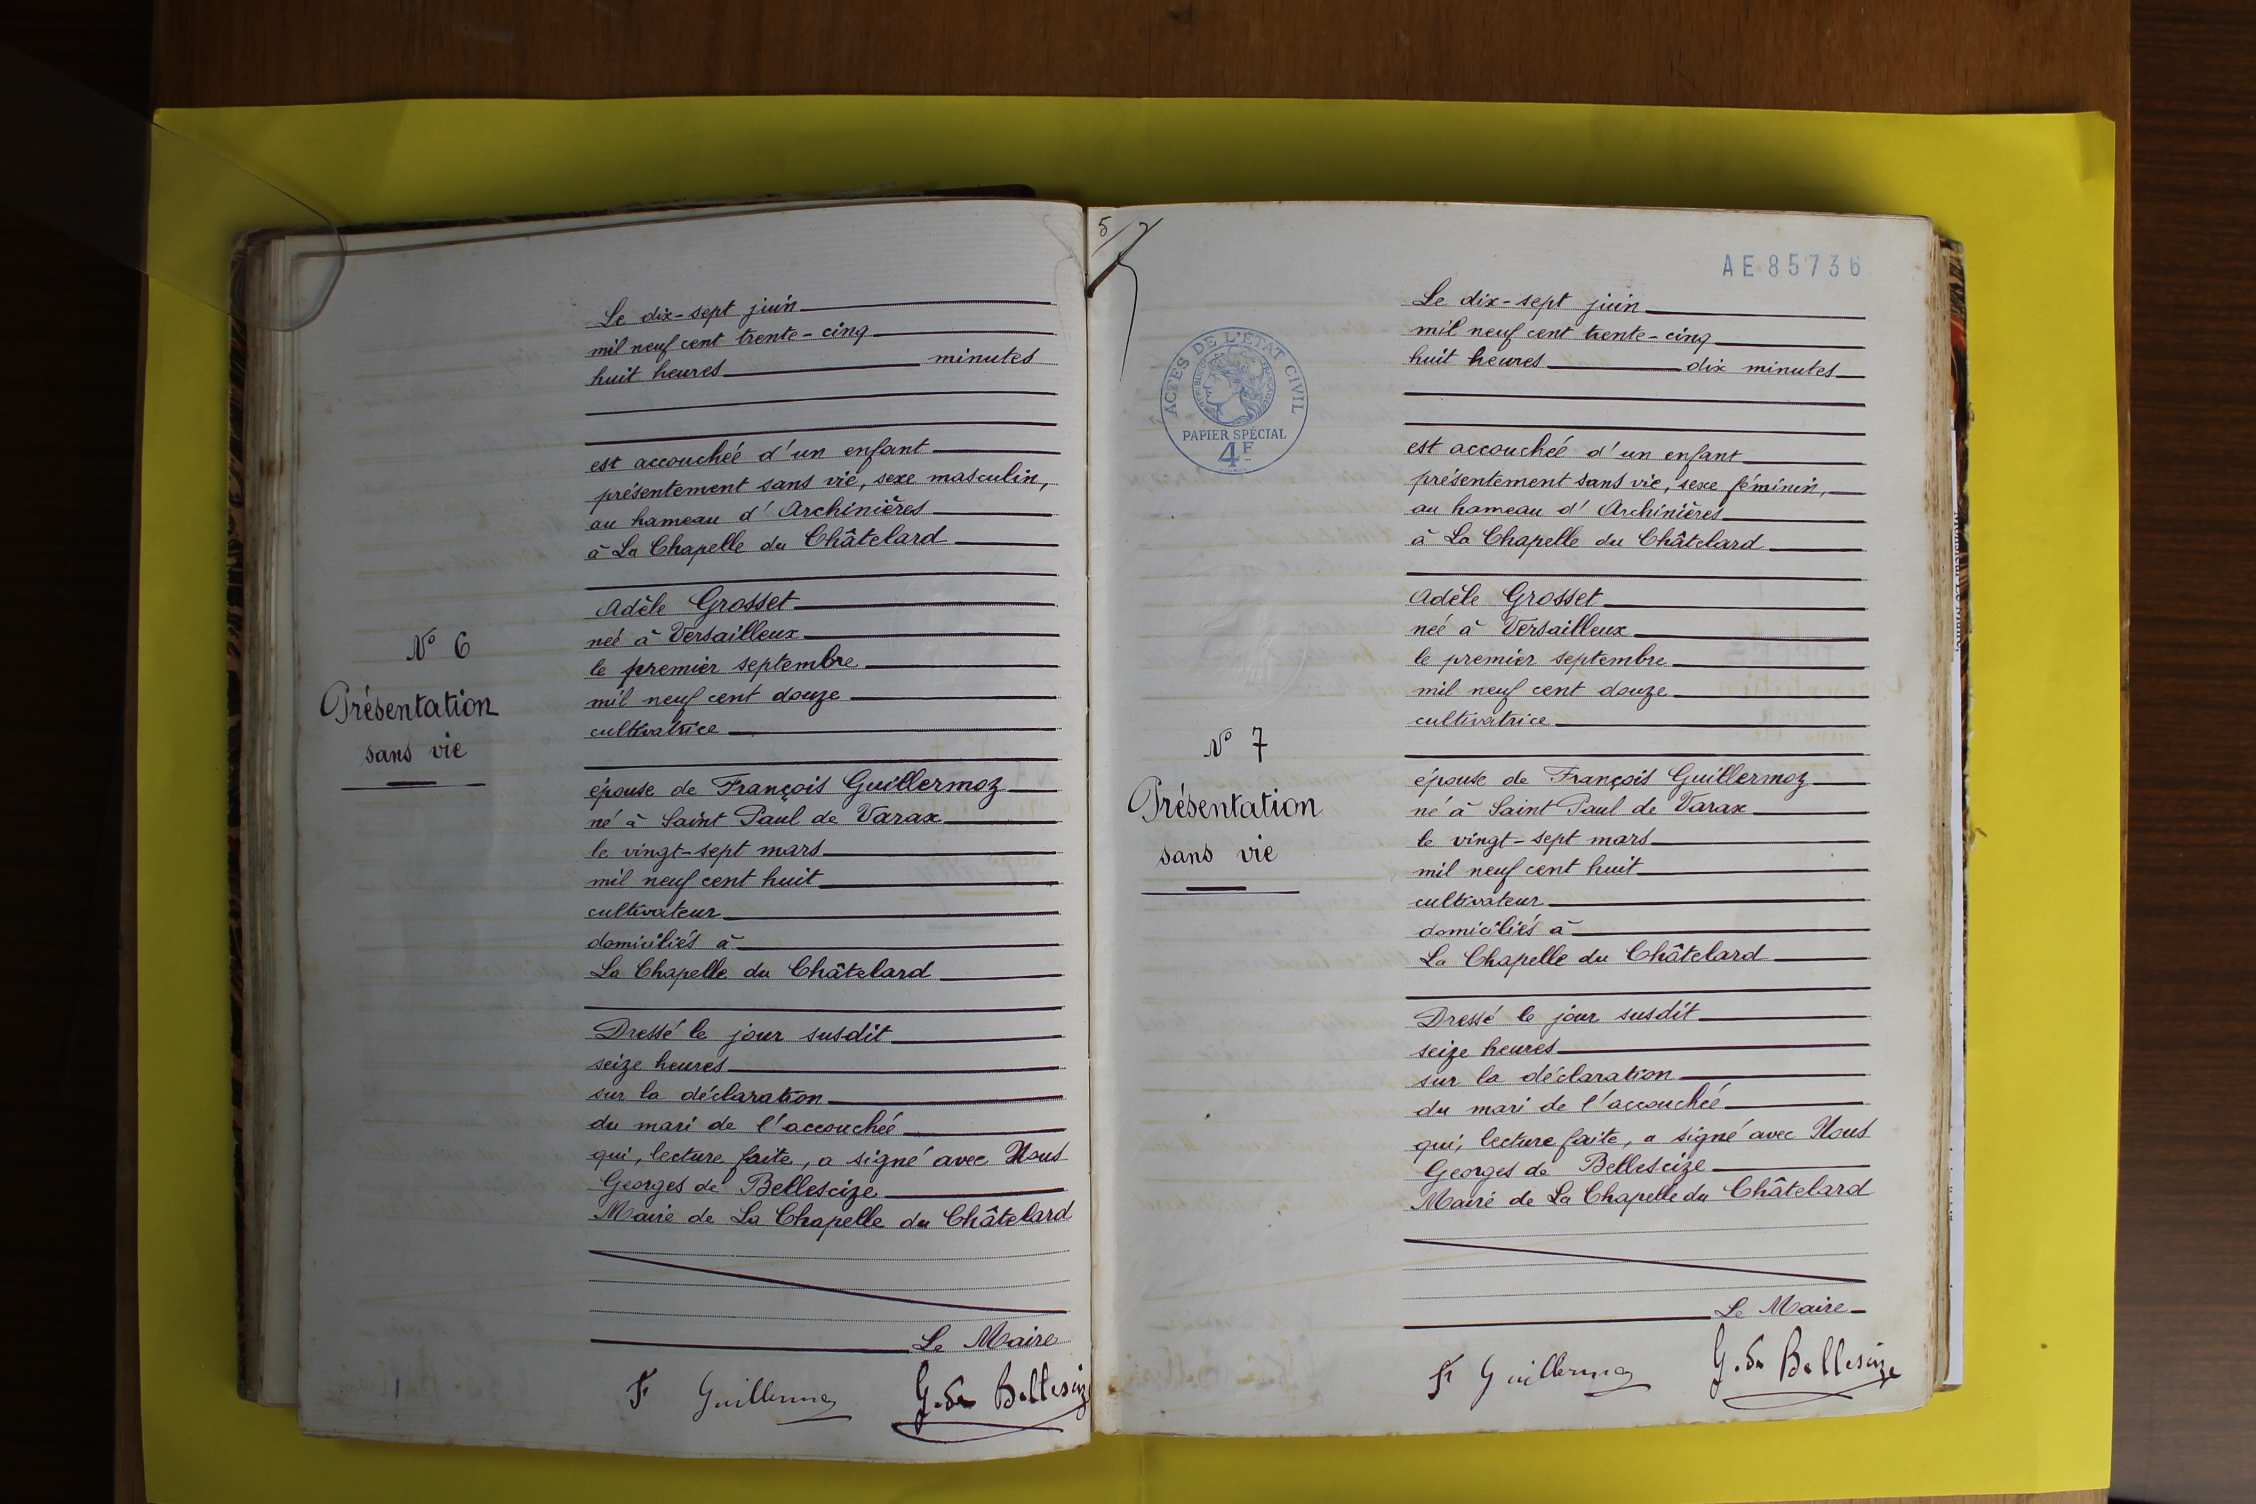 Le dix-sept juin
mil neuf cent trente-cinq
huit heures minutes
est accouchée d'un enfant
présentement sans vie, sexe masculin,
au hameau d'Archinières
à La Chapelle du Châtelard
N° 6
Présentation
sans vie
Adèle Grosset
née à Versailleux
le premier septembre
mil neuf cent douze
cultivatrice
épouse de François Guillermoz
né à Saint Paul de Varax
le vingt-sept mars
mil neuf cent huit
cultivateur
domiciliés à
La Chapelle du Châtelard
Dressé le jour susdit
seize heures
sur la déclaration
du mari de l'accouchée
qui, lecture faite, a signé avec Nous
Georges de Bellescize
Maire de La Chapelle du Châtelard
Le Maire
F Guillermoz G. de Bellescize
5
AE 85736
ACTES DE L'ÉTAT CIVIL
PAPIER SPÉCIAL
4F
Le dix-sept juin
mil neuf cent trente-cinq
huit heures dix minutes
est accouchée d'un enfant
présentement sans vie, sexe féminin,
au hameau d'Archinières
à La Chapelle du Châtelard
N° 7
Présentation
sans vie
Adèle Grosset
née à Versailleux
le premier septembre
mil neuf cent douze
cultivatrice
épouse de François Guillermoz
né à Saint Paul de Varax
le vingt-sept mars
mil neuf cent huit
cultivateur
domiciliés à
La Chapelle du Châtelard
Dressé le jour susdit
seize heures
sur la déclaration
du mari de l'accouchée
qui, lecture faite, a signé avec Nous
Georges de Bellescize
Maire de La Chapelle du Châtelard
Le Maire
F Guillermoz G. de Bellescize